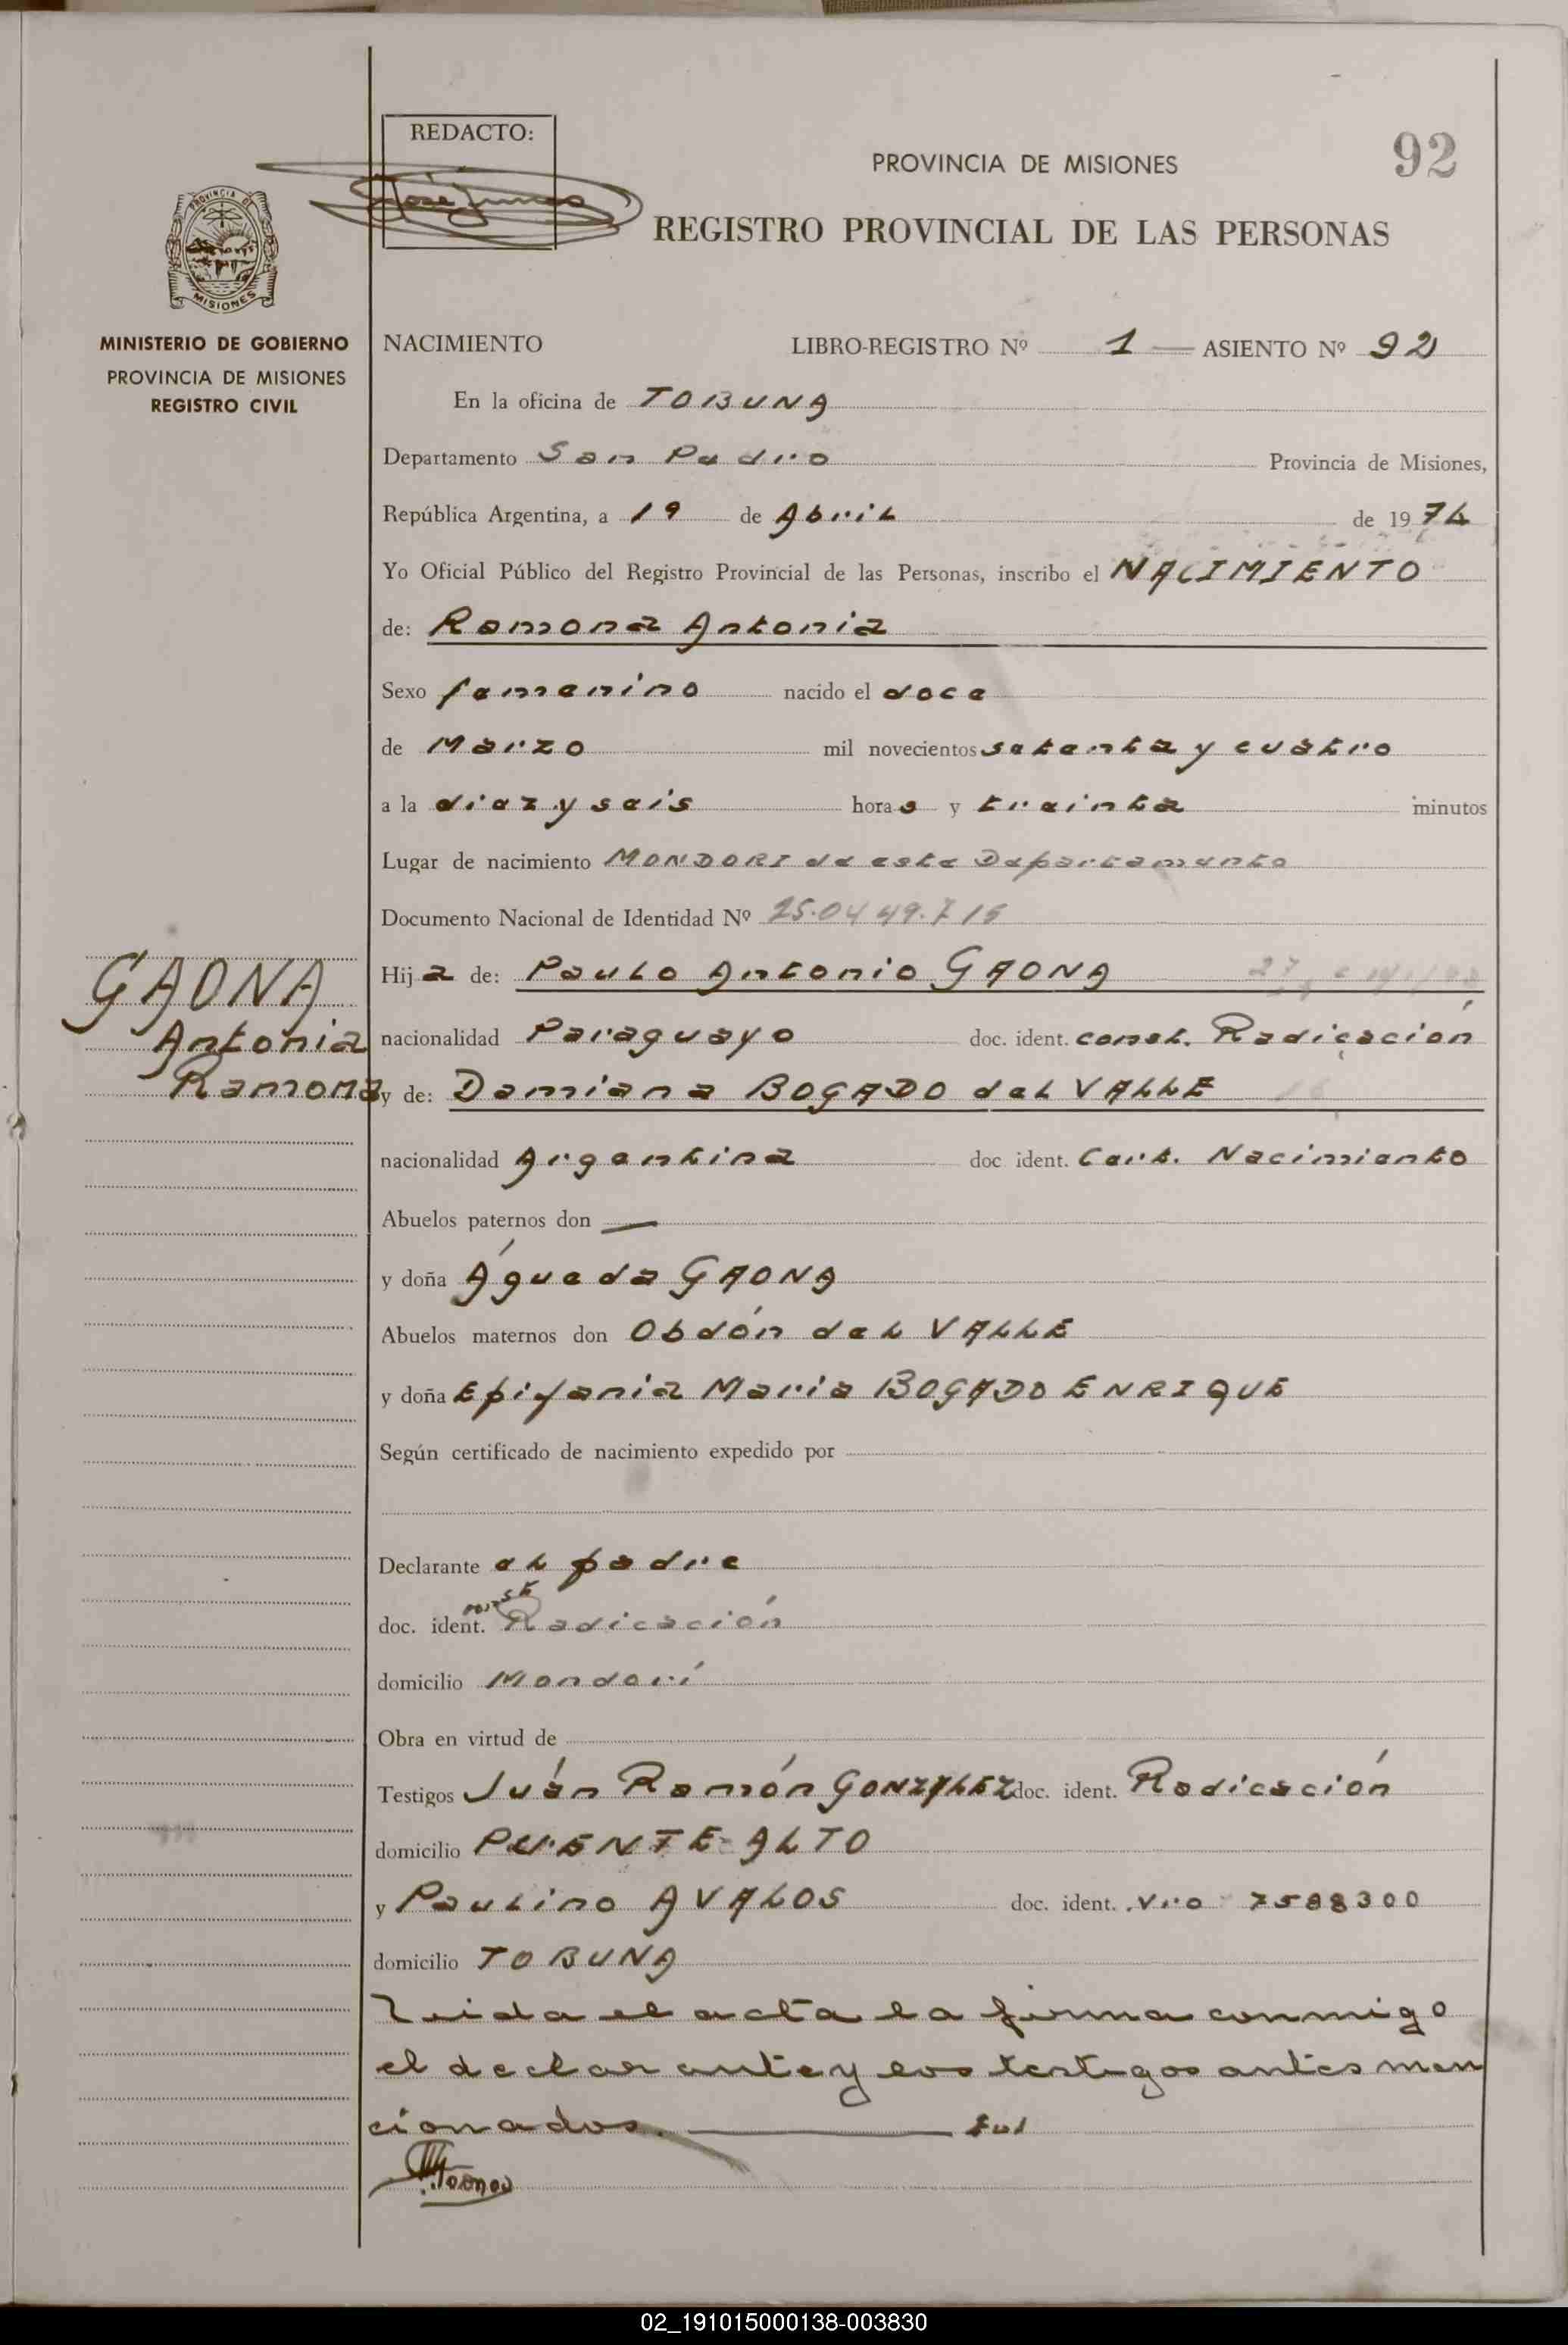 REDACTO:
PROVINCIA DE MISIONES
92
REGISTRO PROVINCIAL DE LAS PERSONAS
PROVINCIA DE
MISIONES
MINISTERIO DE GOBIERNO
PROVINCIA DE MISIONES
REGISTRO CIVIL
NACIMIENTO LIBRO-REGISTRO Nº 1 — ASIENTO Nº 92
En la oficina de TOBUNA
Departamento San Pedro Provincia de Misiones,
República Argentina, a 19 de Abril de 1974
Yo Oficial Público del Registro Provincial de las Personas, inscribo el NACIMIENTO
de: Ramona Antonia
Sexo femenino nacido el doce
de Marzo mil novecientos setenta y cuatro
a la diez y seis horas y treinta minutos
Lugar de nacimiento MONDORI de este Departamento
Documento Nacional de Identidad Nº
GAONA
Antonia
Ramona
Hija de: Paulo Antonio GAONA
nacionalidad Paraguayo doc. ident. const. Radicación
y de: Damiana BOGADO del VALLE
nacionalidad Argentina doc ident. Cert. Nacimiento
Abuelos paternos don —
y doña Águeda GAONA
Abuelos maternos don Obdón del VALLE
y doña Epifania Maria BOGADO ENRIQUE
Según certificado de nacimiento expedido por
Declarante el padre
doc. ident. const Radicación
domicilio Mondorí
Obra en virtud de
Testigos Juán Ramón GONZALEZ doc. ident. Radicación
domicilio PUENTE ALTO
y Paulino AVALOS doc. ident. Nro 7588300
domicilio TOBUNA
Leida el acta la firma conmigo
el declarante y los testigos antes men
cionados.
02_191015000138-003830